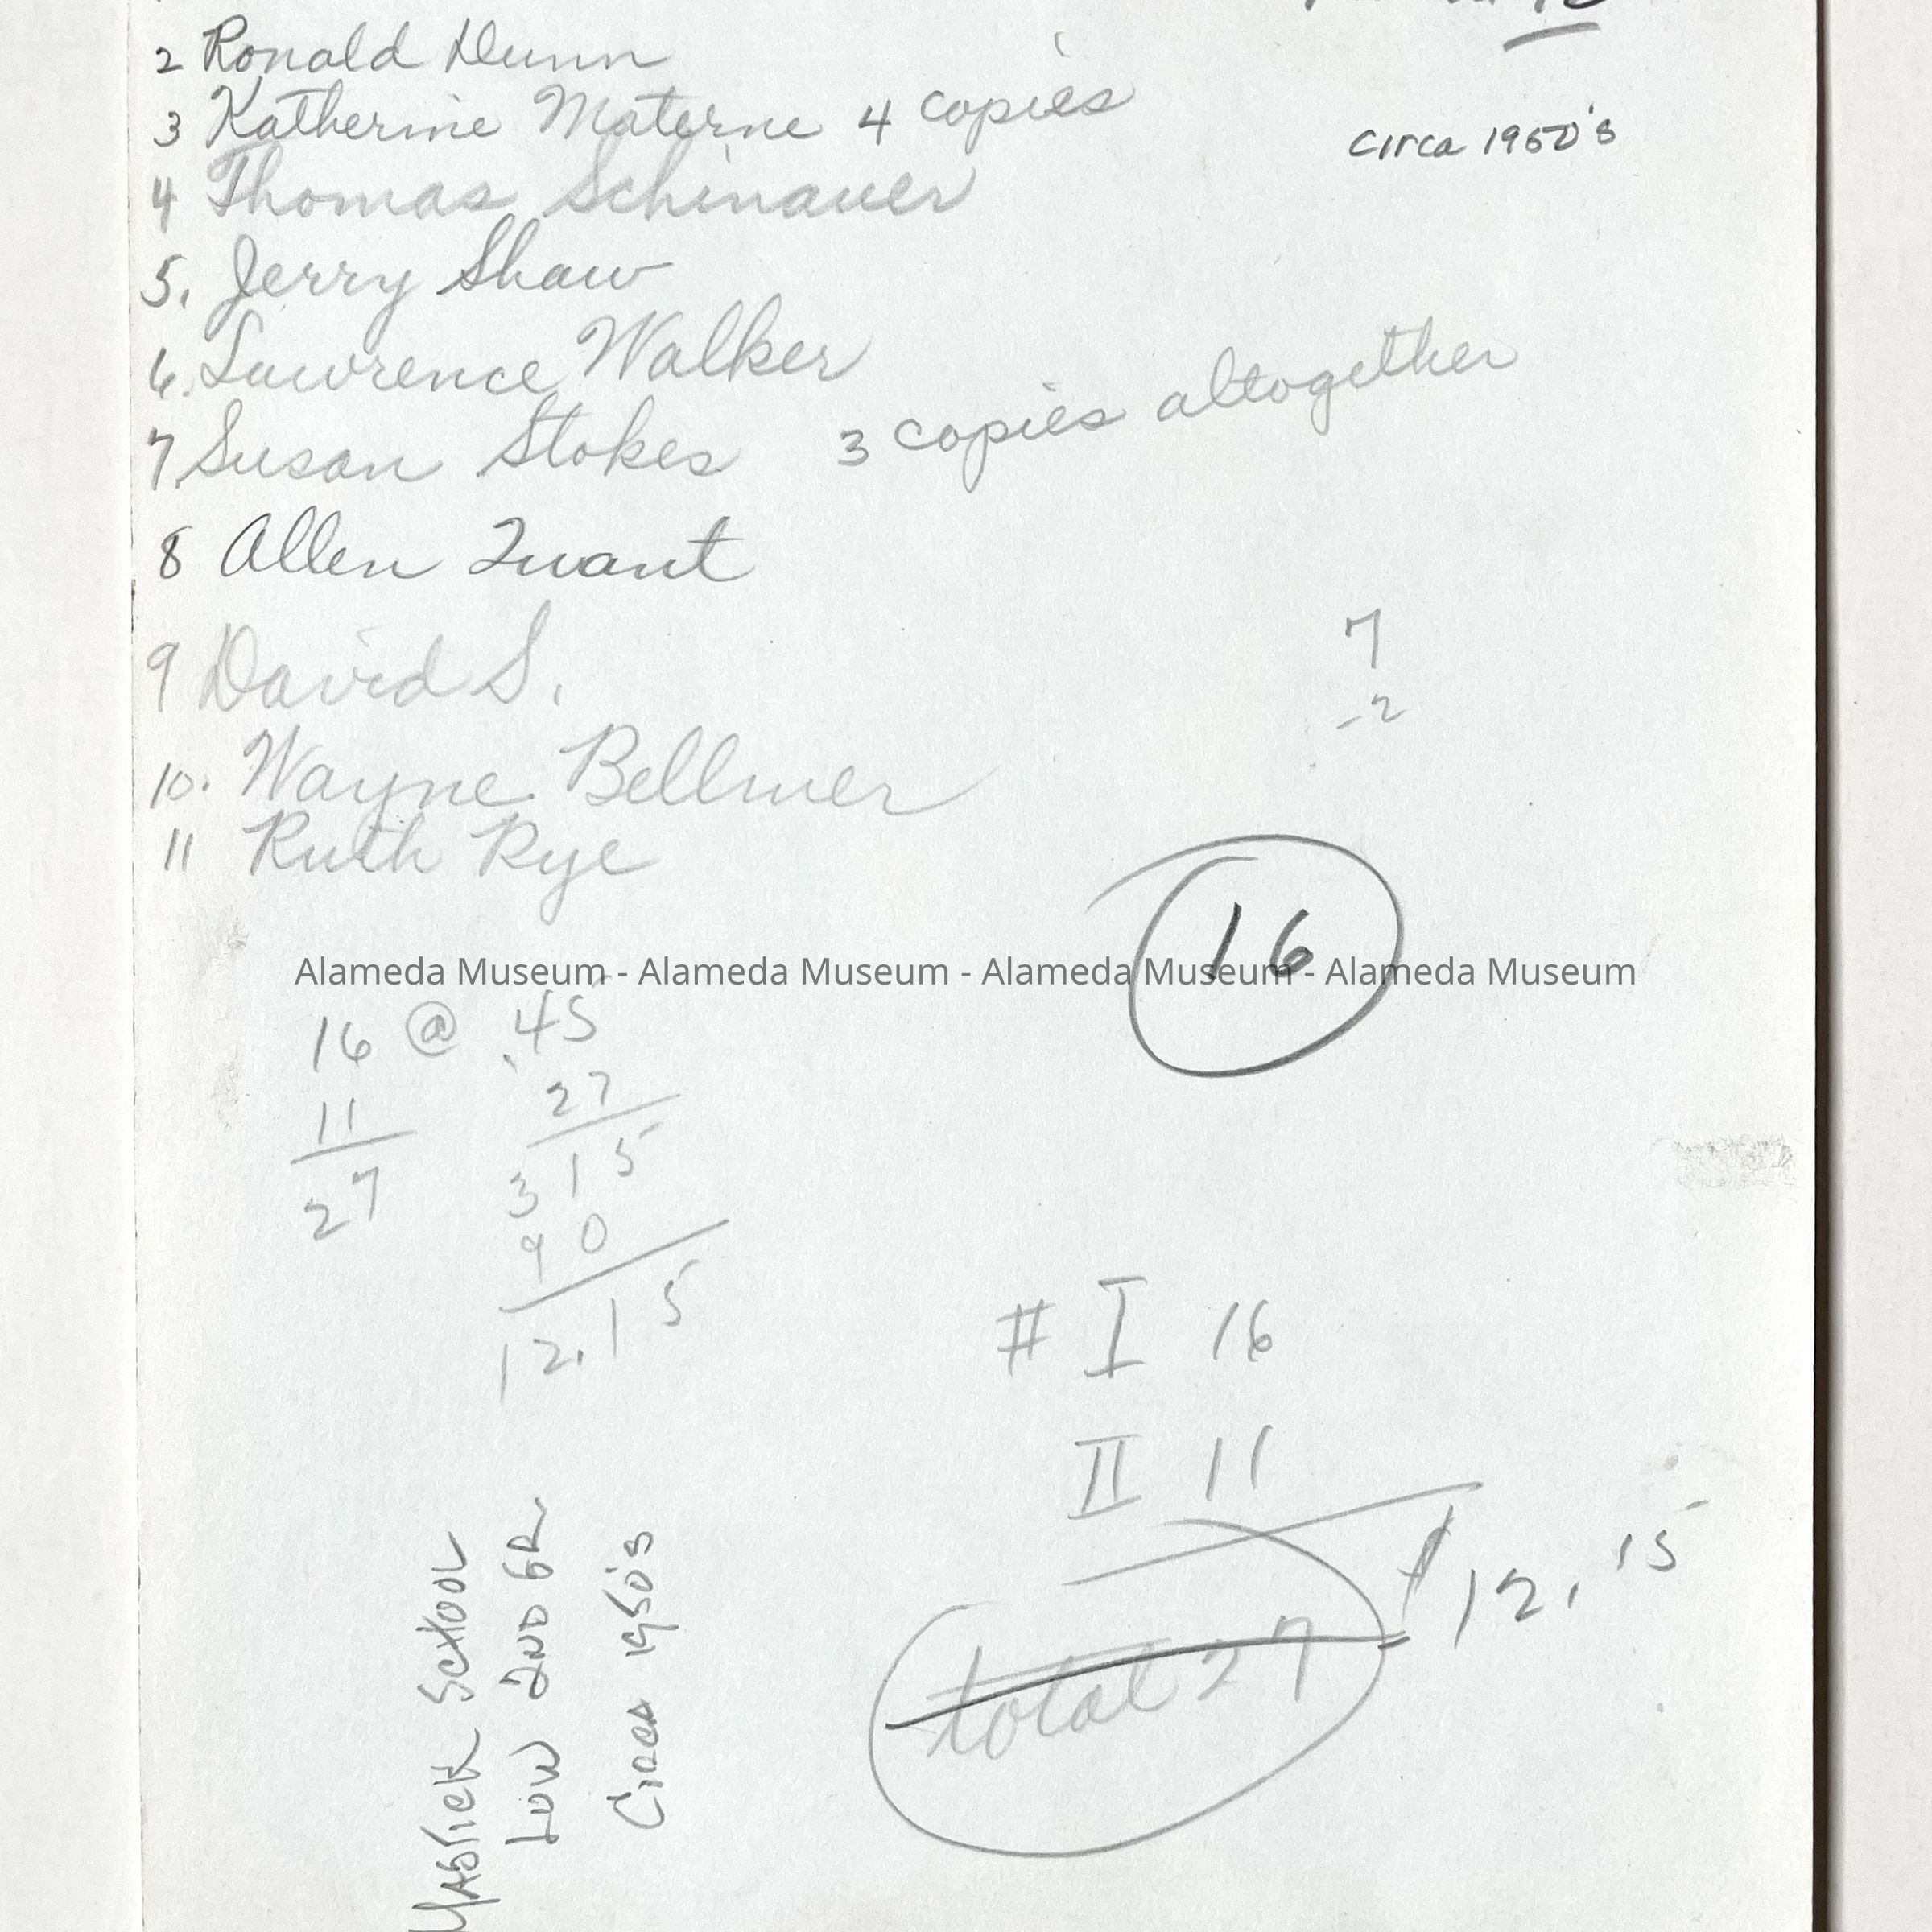 2 Ronald Dunn
3 Katherine Materne 4 copies
circa 1950's
4 Thomas Schinauer
5. Jerry Shaw
6. Lawrence Walker
7. Susan Stokes 3 copies altogether
8 Allen Quant
9 David S.
7
-2
10. Wayne Bellmer
11 Ruth Rye
16
Alameda Museum - Alameda Museum - Alameda Museum - Alameda Museum
16 @ .45
11
27
27
315
90
12.15
# I 16
II 11
total 27
12.15
Mastick School
Low 2nd Gr
Circa 1950's